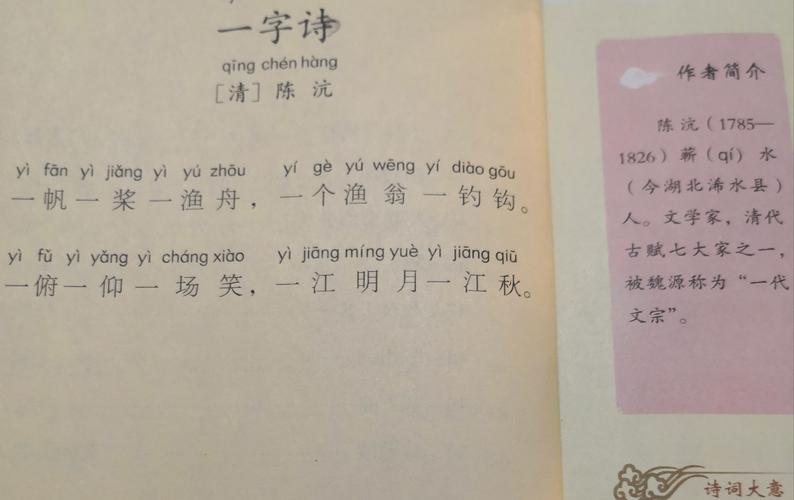 一字诗
qīng chén hàng
［清］陈 沆
yì fān yì jiǎng yì yú zhōu yí gè yú wēng yí diào gōu
一帆一桨一渔舟，一个渔翁一钓钩。
yì fǔ yì yǎng yì cháng xiào yì jiāng míng yuè yì jiāng qiū
一俯一仰一场笑，一江明月一江秋。
作者简介
陈沆（1785—
1826）蕲（qí）水
（今湖北浠水县）
人。文学家，清代
古赋七大家之一，
被魏源称为“一代
文宗”。
诗词大意